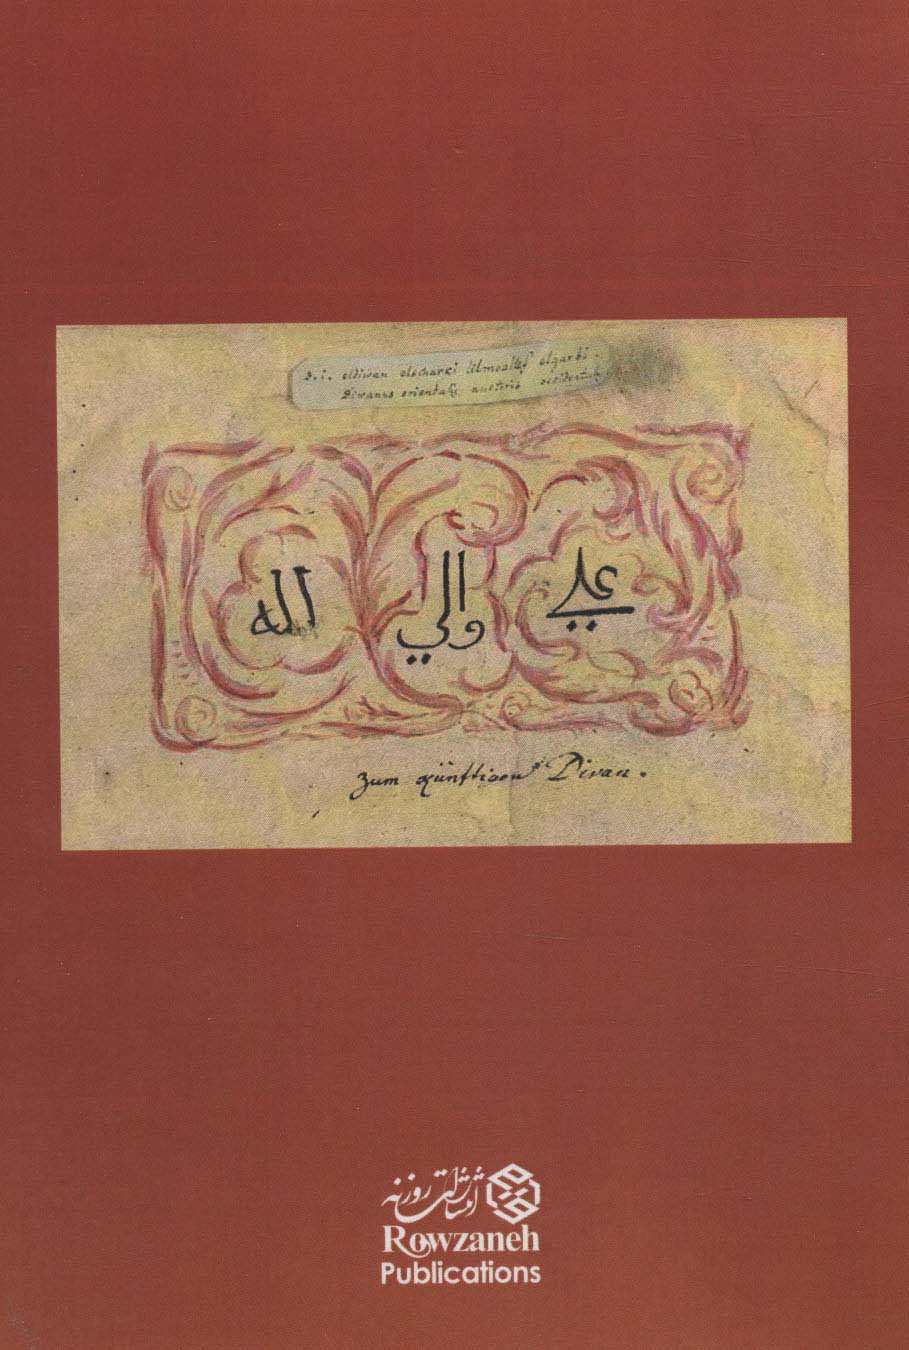 D. i. eldiwan elscharki lilmoallif elgarbi.
Diwanus orientalis auctoris
علي والي لله
zum künftigen Divan.
انتشارات روزنه
Rowzaneh
Publications